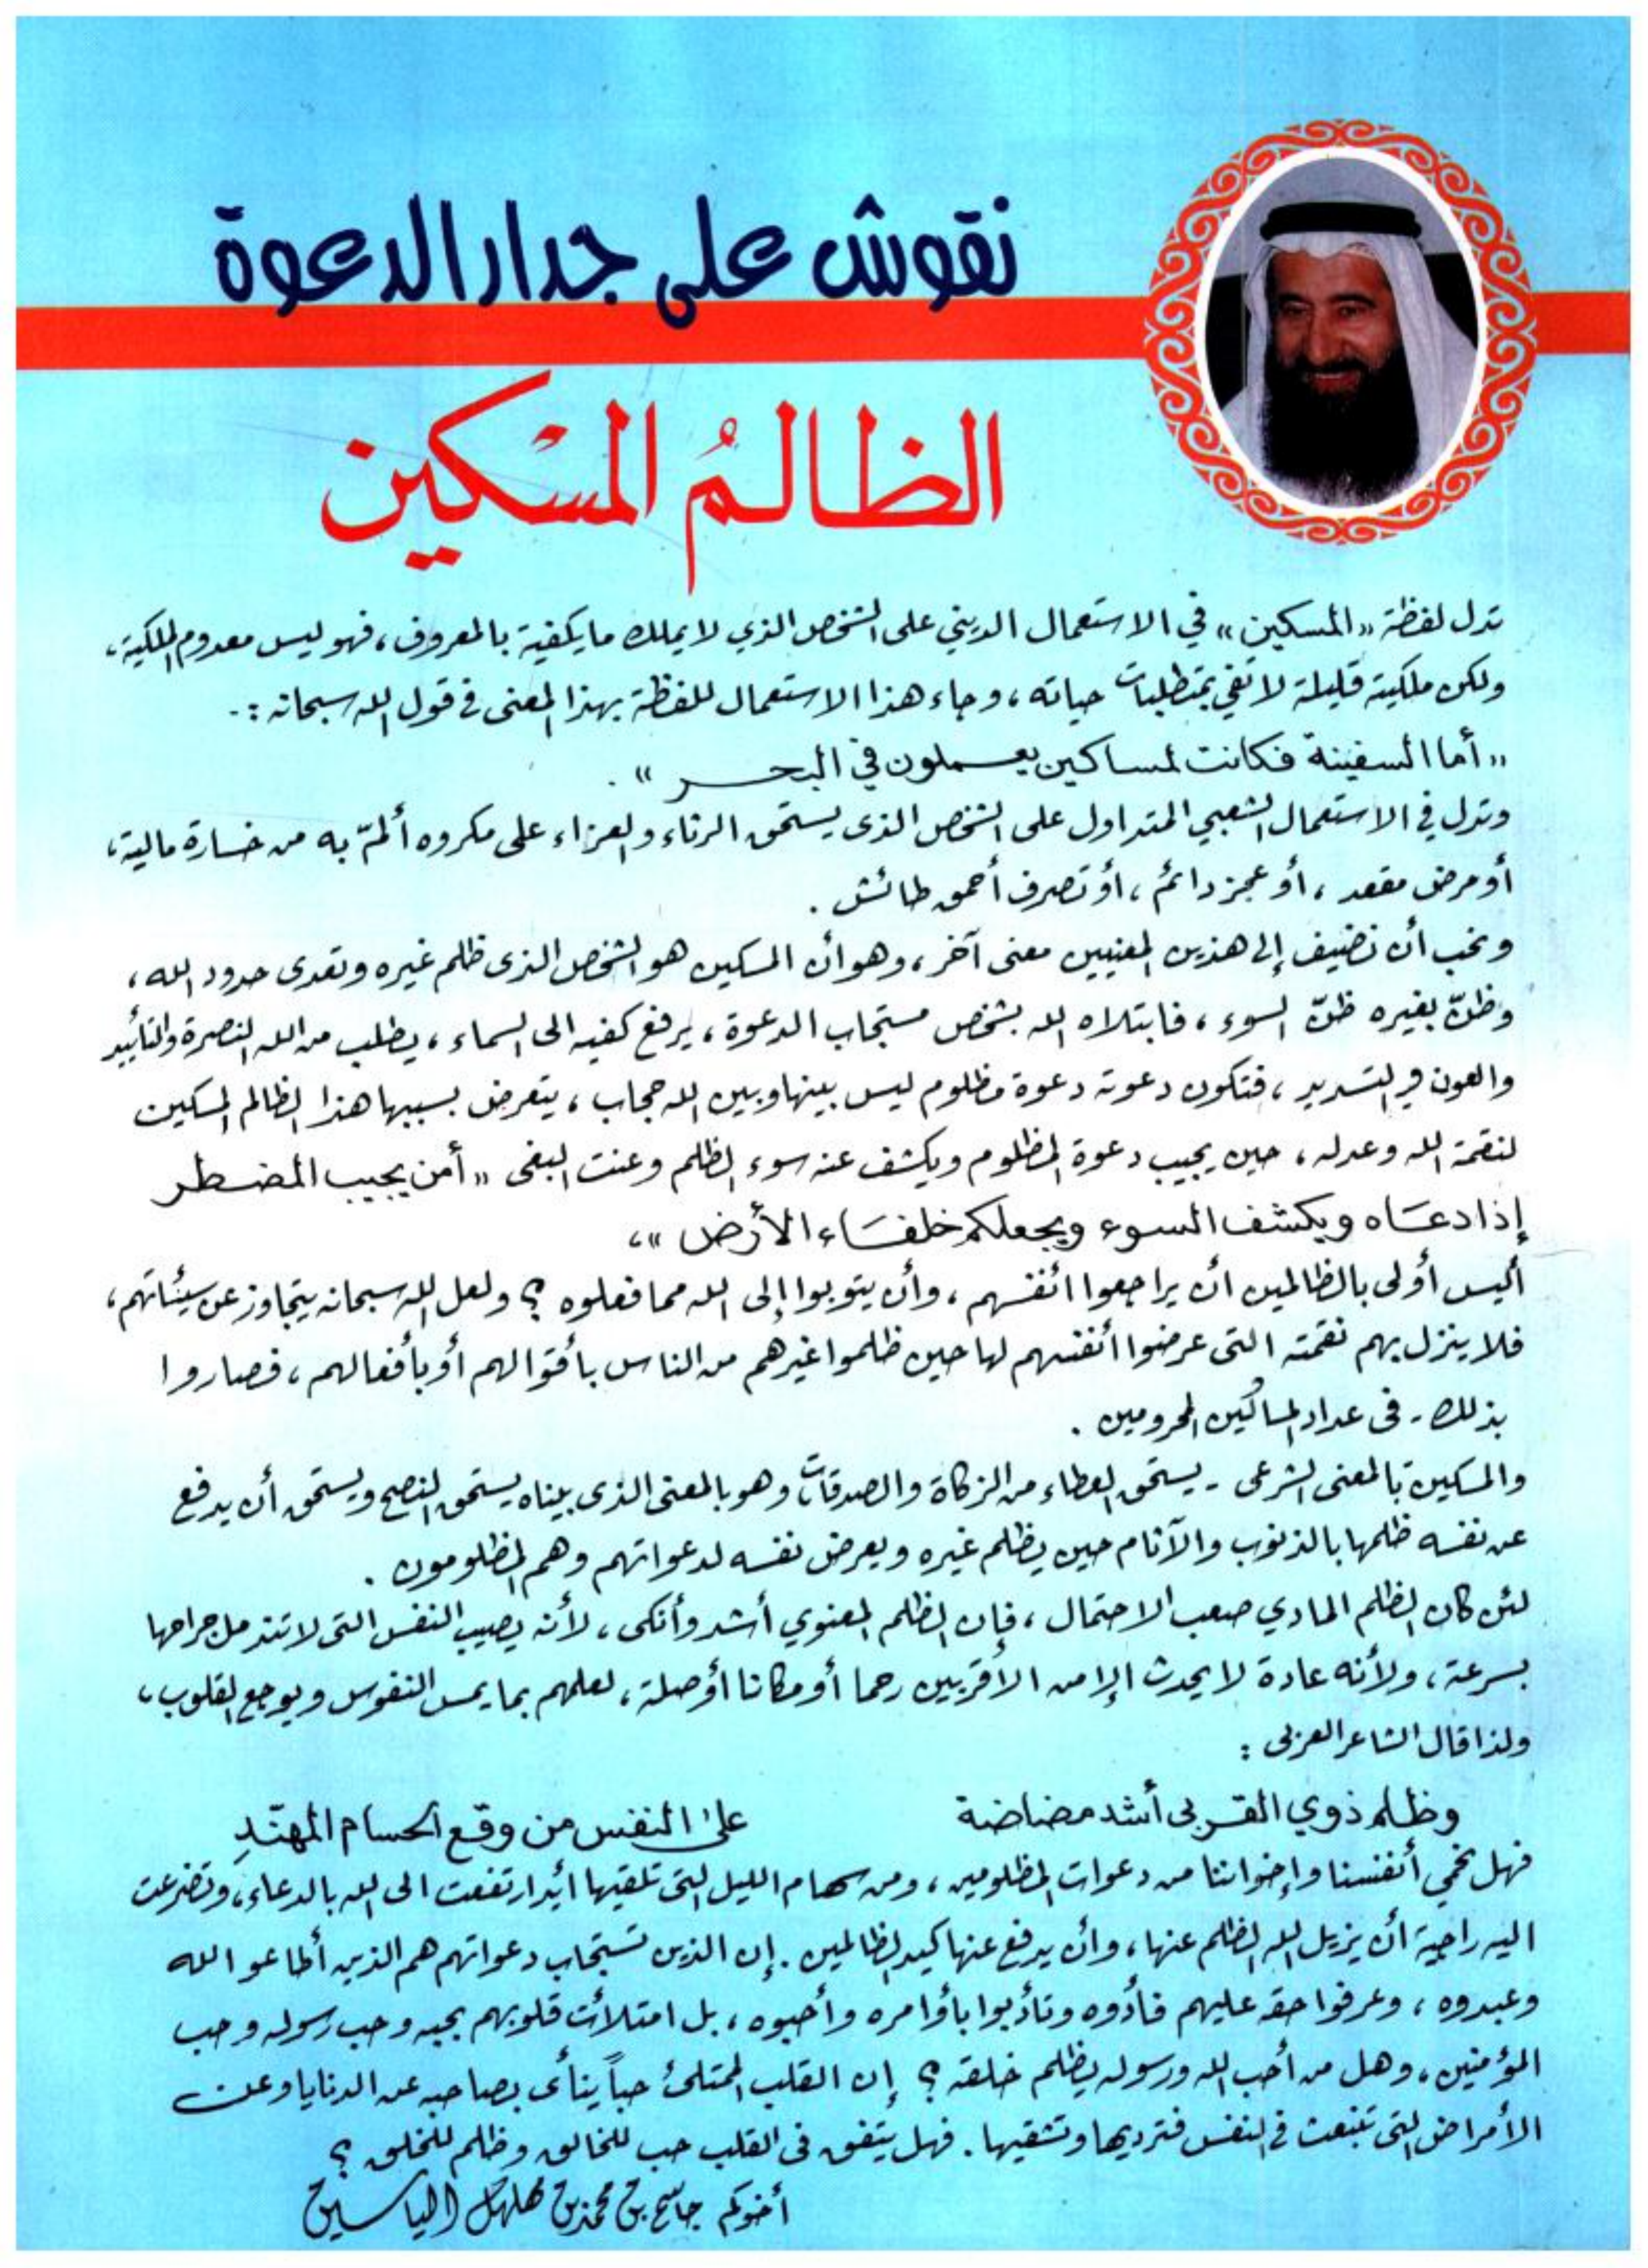 نقوش على جدار الدعوة
الظالمُ المسْكين
تدل لفظة "المسكين" في الاستعمال الديني على الشخص الذي لا يملك ما يكفيه بالمعروف، فهو ليس معدوم الملكية،
ولكن ملكيته قليلة لا تفي بمتطلبات حياته، وجاء هذا الاستعمال للفظة بهذا المعنى في قول الله سبحانه :-
"أما السفينة فكانت لمساكين يعملون في البحر" .
وتدل في الاستعمال الشعبي المتداول على الشخص الذى يستحق الرثاء والعزاء على مكروه ألمّ به من خسارة مالية،
أو مرض مقعد ، أو عجز دائم ، أو تصرف أحمق طائش .
ونحب أن نضيف إلى هذين المعنيين معنى آخر، وهو أن المسكين هو الشخص الذى ظلم غيره وتعدى حدود الله ،
وظنّ بغيره ظنّ السوء ، فابتلاه الله بشخص مستجاب الدعوة ، يرفع كفيه الى السماء ، يطلب من الله النصرة والتأييد
والعون والتسديد ، فتكون دعوته دعوة مظلوم ليس بينها وبين الله حجاب ، يتعرض بسببها هذا الظالم المسكين
لنقمة الله وعدله ، حين يجيب دعوة المظلوم ويكشف عنه سوء الظلم وعنت البغى "أمن يجيب المضطر
إذا دعاه ويكشف السوء ويجعلكم خلفاء الأرض" ،
أليس أولى بالظالمين أن يراجعوا أنفسهم ، وأن يتوبوا إلى الله مما فعلوه ؟ ولعل الله سبحانه يتجاوز عن سيئاتهم ،
فلا ينزل بهم نقمته التى عرضوا أنفسهم لها حين ظلموا غيرهم من الناس بأقوالهم أو بأفعالهم ، فصاروا
بذلك - فى عداد المساكين المحرومين .
والمسكين بالمعنى الشرعى - يستحق العطاء من الزكاة والصدقات وهو بالمعنى الذى بيناه يستحق النصح ويستحق أن يدفع
عن نفسه ظلمها بالذنوب والآثام حين يظلم غيره ويعرض نفسه لدعواتهم وهم المظلومون .
لئن كان الظلم المادي صعب الاحتمال ، فإن الظلم المعنوي أشد وأنكى ، لأنه يصيب النفس التى لا تندمل جراحها
بسرعة ، ولأنه عادة لا يحدث إلا من الأقربين رحما أو مكانا أو صلة ، لعلمهم بما يمس النفوس ويوجع القلوب ،
ولذا قال الشاعر العربى :
وظلم ذوي القربى أشد مضاضة على النفس من وقع الحسام المهنّدِ
فهل نحمي أنفسنا وإخواننا من دعوات المظلومين ، ومن سهام الليل التى تلقيها أيد ارتفعت الى الله بالدعاء ، وتضرعت
اليه راجية أن يزيل الله الظلم عنها ، وأن يدفع عنها كيد الظالمين . إن الذين تستجاب دعواتهم هم الذين أطاعوا الله
وعبدوه ، وعرفوا حقه عليهم فأدوه وتأدبوا بأوامره وأحبوه ، بل امتلأت قلوبهم بحبه وحب رسوله وحب
المؤمنين ، وهل من أحب الله ورسوله يظلم خلقه ؟ إن القلب الممتلئ حباً ينأى بصاحبه عن الدنايا وعن
الأمراض التى تنبعث في النفس فترديها وتشقيها . فهل يتفق فى القلب حب للخالق وظلم للخلق ؟
أخوكم جاسم بن محمد بن مهلهل الياسين